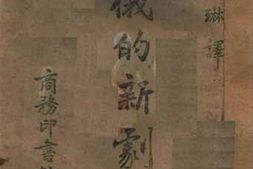 琳譯
俄的新劇
商務印書